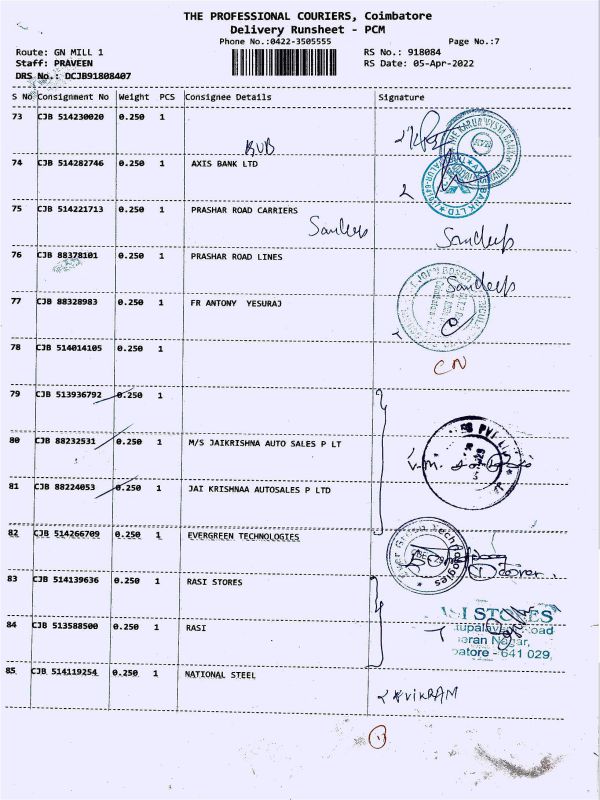 THE PROFESSIONAL COURIERS, Coimbatore
Delivery Runsheet - PCM
Phone No.:0422-3505555 Page No.:7
Route: GN MILL 1 RS No.: 918084
Staff: PRAVEEN RS Date: 05-Apr-2022
DRS No.: DCJB91808407
S No Consignment No Weight PCS Consignee Details Signature
73 CJB 514230020 0.250 1
74 CJB 514282746 0.250 1 AXIS BANK LTD
75 CJB 514221713 0.250 1 PRASHAR ROAD CARRIERS
Sandeep Sandeep
76 CJB 88378101 0.250 1 PRASHAR ROAD LINES
Sandeep
77 CJB 88328983 0.250 1 FR ANTONY YESURAJ
78 CJB 514014105 0.250 1
CN
79 CJB 513936792 0.250 1
80 CJB 88232531 0.250 1 M/S JAIKRISHNA AUTO SALES P LT
81 CJB 88224053 0.250 1 JAI KRISHNAA AUTOSALES P LTD
82 CJB 514266709 0.250 1 EVERGREEN TECHNOLOGIES
Ever Green Technologies
83 CJB 514139636 0.250 1 RASI STORES
SI STORES
84 CJB 513588500 0.250 1 RASI
eran Nagar,
patore - 641 029.
85 CJB 514119254 0.250 1 NATIONAL STEEL
VIKRAM
11